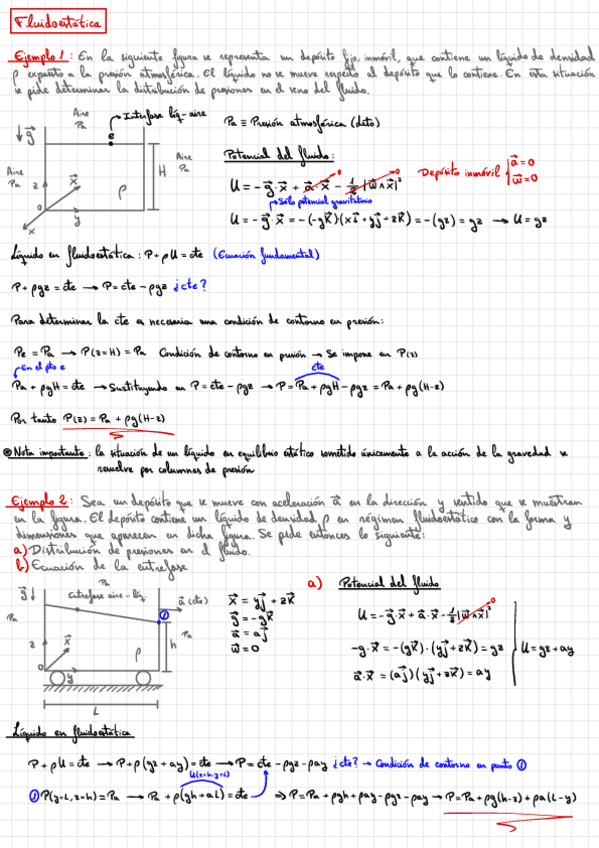 Fluidoestática
Ejemplo 1: En la siguiente figura se representa un depósito fijo, inmóvil, que contiene un líquido de densidad
ρ expuesto a la presión atmosférica. El líquido no se mueve respecto al depósito que lo contiene. En esta situación
se pide determinar la distribución de presiones en el seno del fluido.
Aire Pa
Interfase líq-aire
↓g⃗
e
Aire Pa
H
Aire Pa
z
x⃗
ρ
o
y
x
Pa ≡ Presión atmosférica (dato)
Potencial del fluido:
U = -g⃗·x⃗ + a⃗·x⃗ - 1/2 |w⃗∧x⃗|²
0
0
Sólo potencial gravitatorio
Depósito inmóvil
a⃗=0
w⃗=0
U = -g⃗·x⃗ = -(-gk⃗)(xi⃗+yj⃗+zk⃗) = -(gz) = gz → U = gz
Líquido en fluidoestática: P+ρU = cte (Ecuación fundamental)
P+ρgz = cte → P = cte - ρgz ¿cte?
Para determinar la cte es necesaria una condición de contorno en presión:
Pe = Pa → P(z=H) = Pa Condición de contorno en presión → Se impone en P(z)
en el pto e
cte
Pa + ρgH = cte → Sustituyendo en P = cte - ρgz → P = Pa + ρgH - ρgz = Pa + ρg(H-z)
Por tanto P(z) = Pa + ρg(H-z)
Nota importante: la situación de un líquido en equilibrio estático sometido únicamente a la acción de la gravedad se
resuelve por columnas de presión
Ejemplo 2: Sea un depósito que se mueve con aceleración a⃗ en la dirección y sentido que se muestran
en la figura. El depósito contiene un líquido de densidad ρ en régimen fluidoestático con la forma y
dimensiones que aparecen en dicha figura. Se pide entonces lo siguiente:
a) Distribución de presiones en el fluido.
b) Ecuación de la entrefase
Pa
g⃗↓
entrefase aire-líq.
a⃗ (cte)
①
Pa
Pa
z
x⃗
ρ
h
o
y
L
x⃗ = yj⃗ + zk⃗
g⃗ = -gk⃗
a⃗ = aj⃗
w⃗ = 0
a) Potencial del fluido
U = -g⃗·x⃗ + a⃗·x⃗ - 1/2|w⃗∧x⃗|²
0
-g⃗·x⃗ = -(-gk⃗)·(yj⃗+zk⃗) = gz
a⃗·x⃗ = (aj⃗)(yj⃗+zk⃗) = ay
U = gz + ay
Líquido en fluidoestática
P+ρU = cte → P+ρ(gz+ay) = cte → P = cte - ρgz - ρay ¿cte? → Condición de contorno en punto ①
U(z=h, y=L)
① P(y=L, z=h) = Pa → Pa + ρ(gh+aL) = cte ⇒ P = Pa + ρgh + ρay - ρgz - ρay → P = Pa + ρg(h-z) + ρa(L-y)